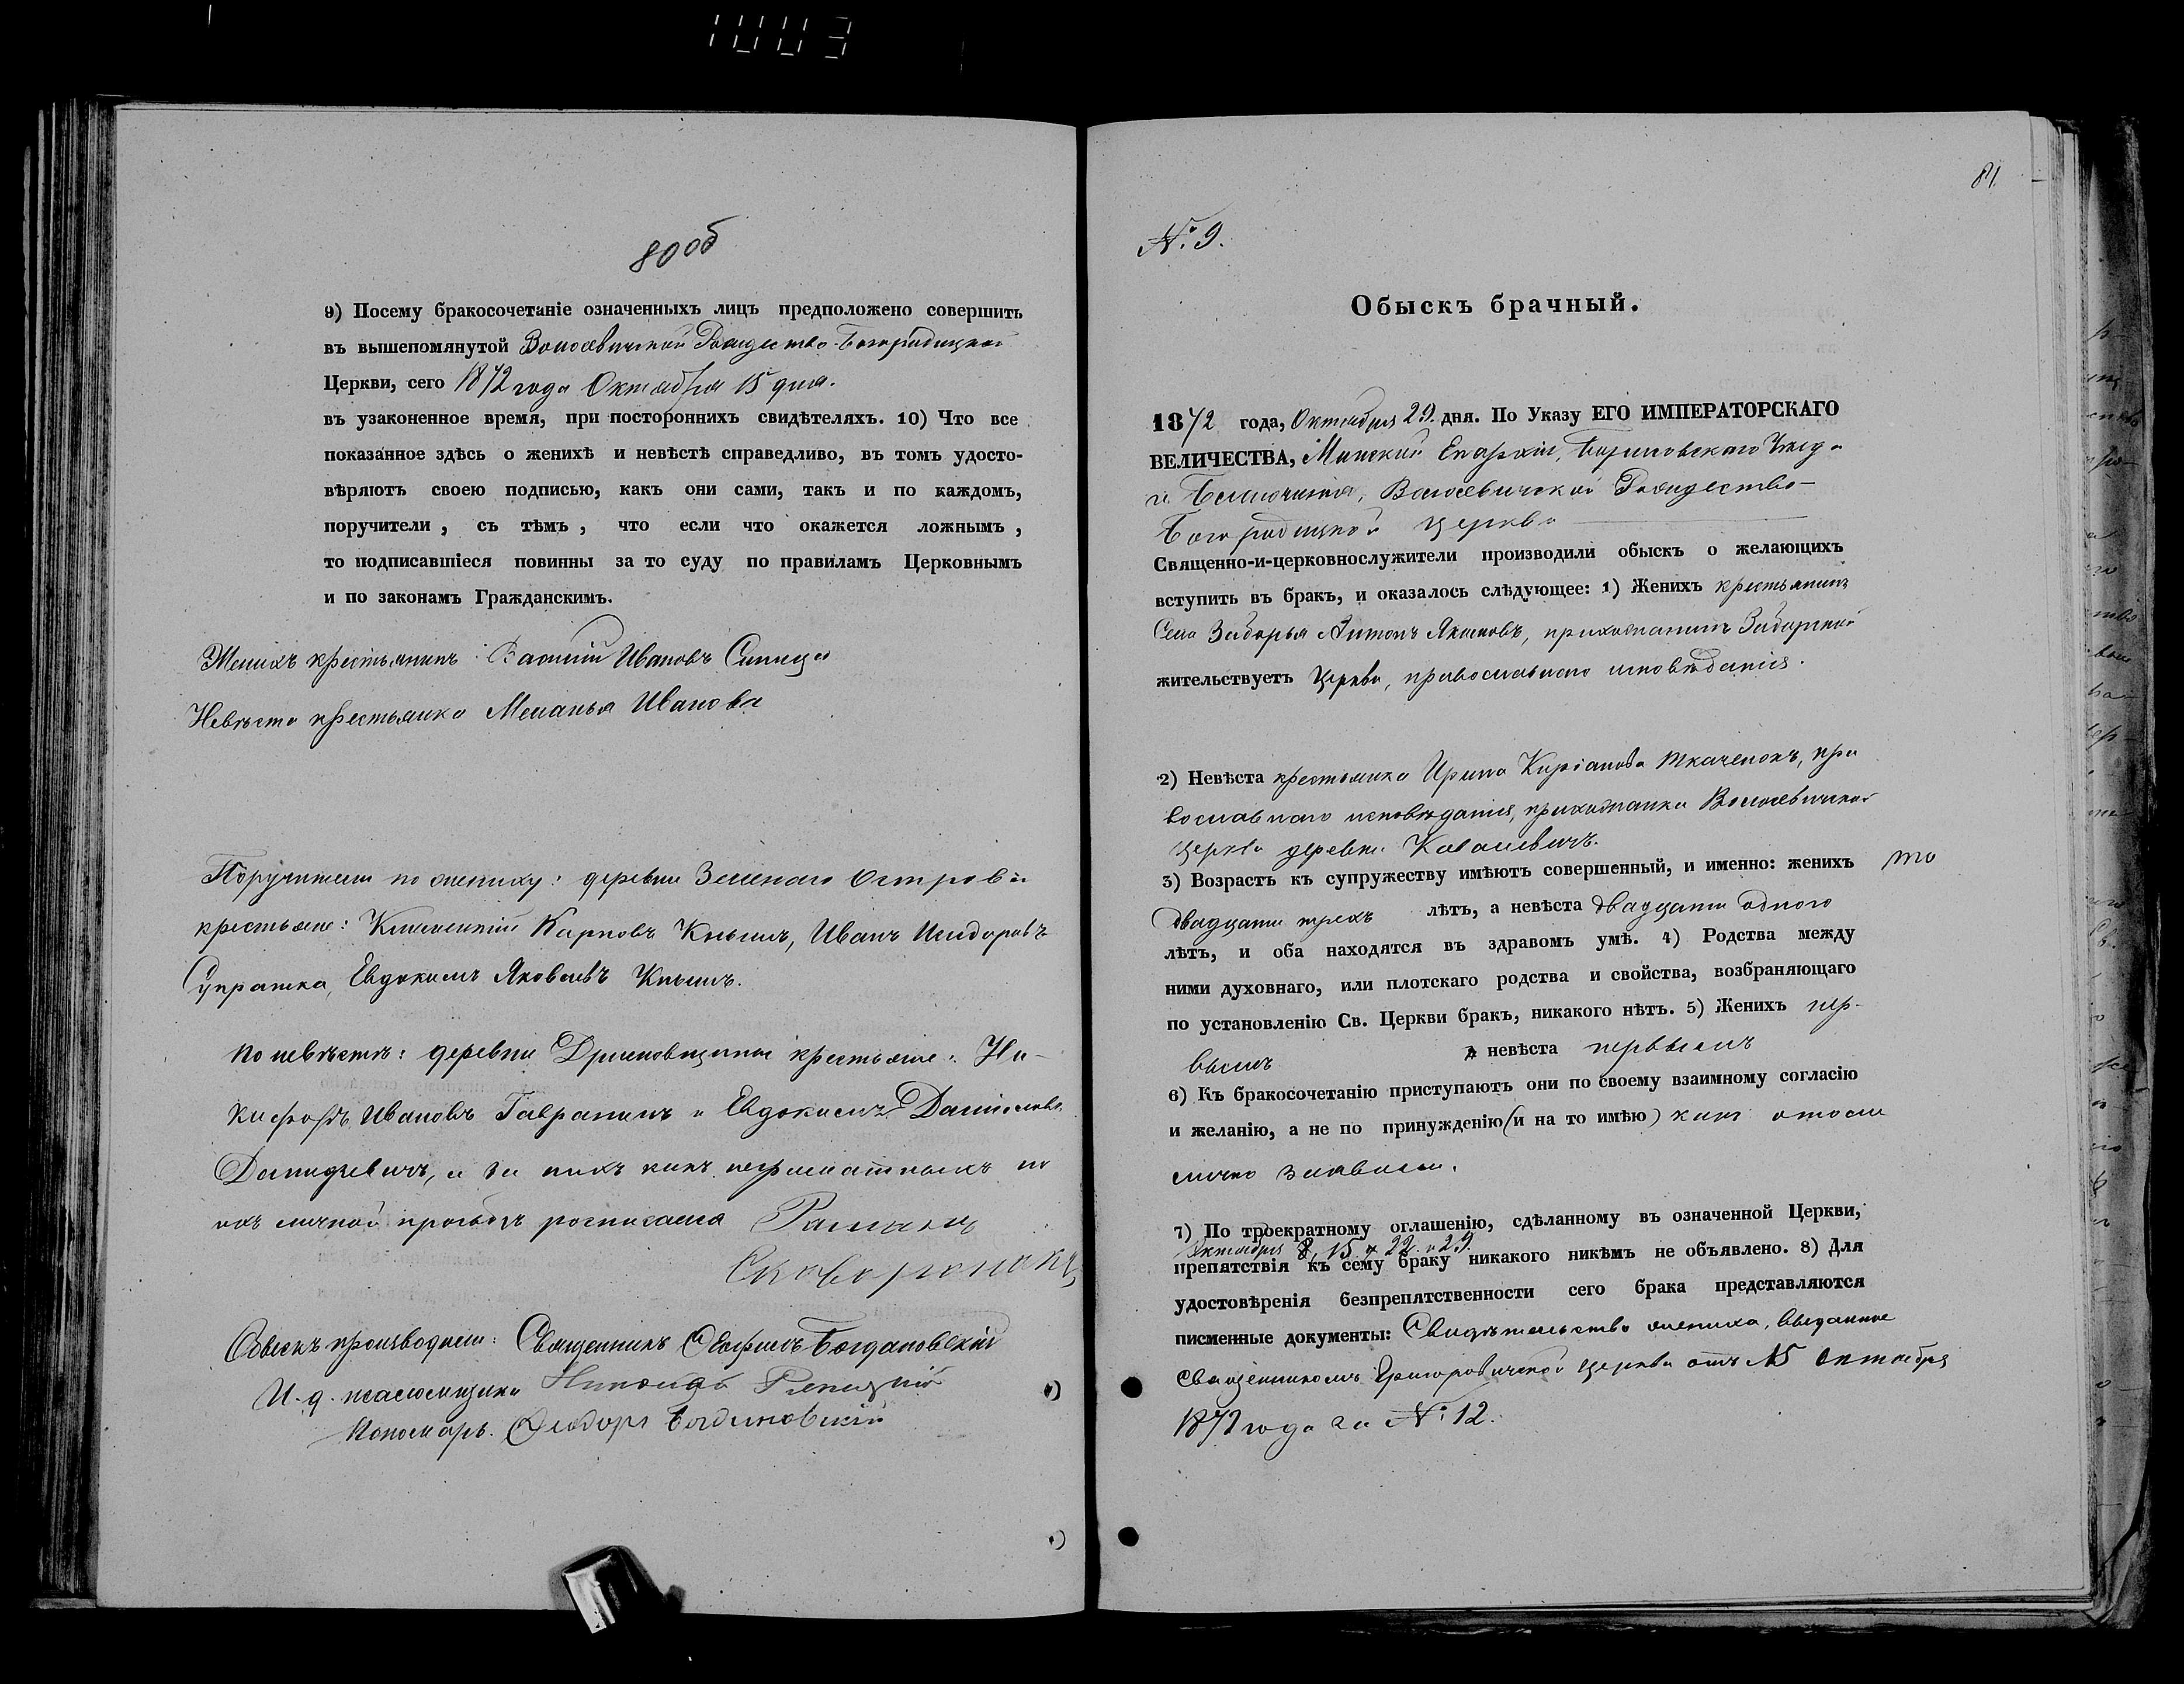 1003
80 об
9) Посему бракосочетаніе означенныхъ лицъ предположено совершить
въ вышепомянутой Волосевичской Рождество-Богородицкой
Церкви, сего 1872 года Октября 15 дня.
въ узаконенное время, при постороннихъ свидѣтеляхъ. 10) Что все
показанное здѣсь о женихѣ и невѣстѣ справедливо, въ томъ удосто-
вѣряютъ своею подписью, какъ они сами, такъ и по каждомъ,
поручители, съ тѣмъ, что если что окажется ложнымъ,
то подписавшіеся повинны за то суду по правиламъ Церковнымъ
и по законамъ Гражданскимъ.
Женихъ крестьянинъ Василій Ивановъ Синица
Невѣста крестьянка Меланья Иванова
Поручители по женихѣ: деревни Зеленаго Острова
крестьяне: Климентій Карповъ Кнышъ, Иванъ Исидоровъ
Супратка, Евдокимъ Яковлевъ Кнышъ.
По невѣстѣ: деревни крестьяне: Ни-
кифоръ Ивановъ и Евдокимъ
а за нихъ какъ неграмотныхъ по
ихъ личной просьбѣ росписался Романъ
Обыскъ производили: Священникъ Богдановскій
И. д. псаломщика
Пономарь Ѳеодоръ Богдановскій
81
№ 9.
Обыскъ брачный.
1872 года, Октября 29 дня. По Указу ЕГО ИМПЕРАТОРСКАГО
ВЕЛИЧЕСТВА, Минской Епархіи, Борисовскаго Уѣзда
и Благочинія, Волосевичской Рождество-
Богородицкой церкви
Священно-и-церковнослужители производили обыскъ о желающихъ
вступить въ бракъ, и оказалось слѣдующее: 1) Женихъ крестьянинъ
Села Заборья Антонъ Якимовъ, прихожанинъ Заборской
жительствуетъ Церкви, православнаго исповѣданія.
2) Невѣста крестьянка Ирина Киріанова Ткаченокъ, пра
вославнаго исповѣданія, прихожанка Волосевичской
церкви деревни Ковалевичъ.
3) Возрастъ къ супружеству имѣютъ совершенный, и именно: женихъ
двадцати трехъ лѣтъ, а невѣста двадцати одного
лѣтъ, и оба находятся въ здравомъ умѣ. 4) Родства между
ними духовнаго, или плотскаго родства и свойства, возбраняющаго
по установленію Св. Церкви бракъ, никакого нѣтъ. 5) Женихъ пер-
вымъ а невѣста первымъ
6) Къ бракосочетанію приступаютъ они по своему взаимному согласію
и желанію, а не по принужденію (и на то имѣю) какъ о томъ
лично заявили.
7) По троекратному оглашенію, сдѣланному въ означенной Церкви,
Октября 8, 15 и 22 и 29.
препятствія къ сему браку никакого никѣмъ не объявлено. 8) Для
удостовѣренія безпрепятственности сего брака представляются
писменные документы: Свидѣтельство жениха, выданное
Священникомъ Григоровичской церкви отъ 15 Октября
1872 года за № 12.